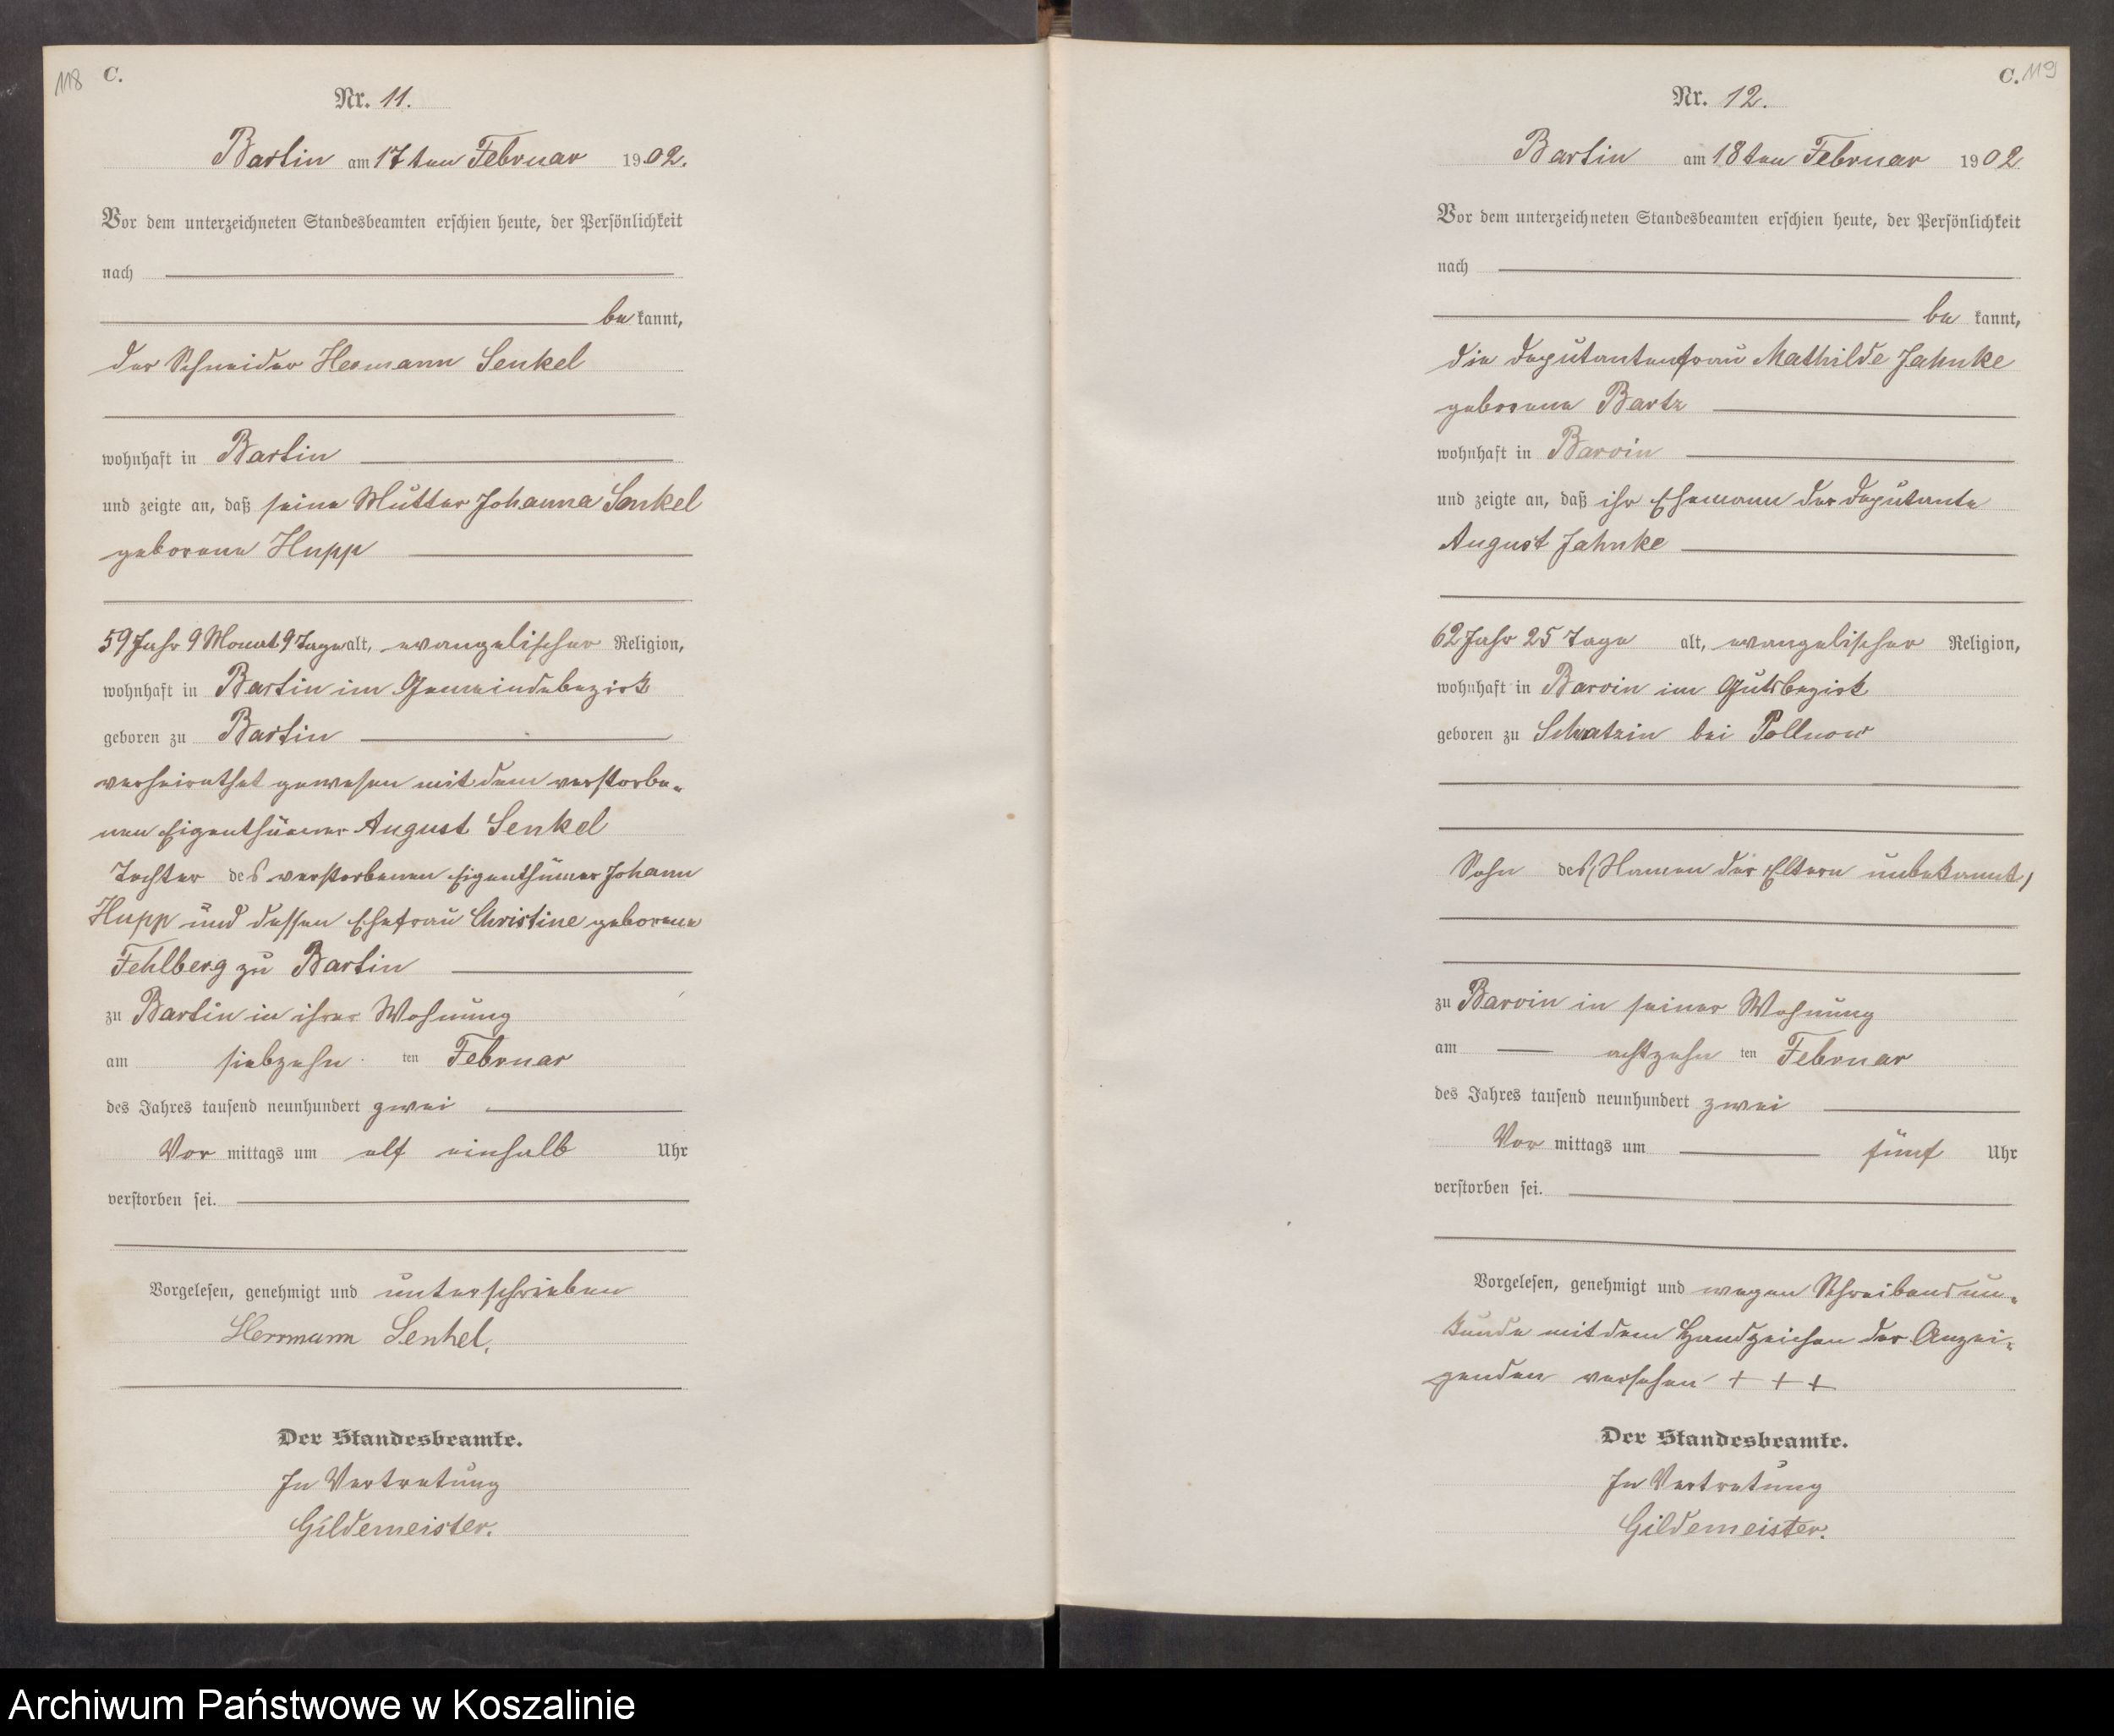 118 C.
Nr. 11.
Bartin am 17ten Februar 1902.
Vor dem unterzeichneten Standesbeamten erschien heute, der Persönlichkeit
nach
bekannt,
der Schneider Hermann Senkel
wohnhaft in Bartin
und zeigte an, daß seine Mutter Johanna Senkel
geborene Hupp
59 Jahr 9 Monat 9 Tage alt, evangelischer Religion,
wohnhaft in Bartin im Gemeindebezirk
geboren zu Bartin
verheirathet gewesen mit dem verstorbe-
nen Eigenthümer August Senkel
Tochter des verstorbenen Eigenthümer Johann
Hupp und dessen Ehefrau Christine geborene
Fehlberg zu Bartin
zu Bartin in ihrer Wohnung
am siebzehn ten Februar
des Jahres tausend neunhundert zwei
Vor mittags um elf einhalb Uhr
verstorben sei.
Vorgelesen, genehmigt und unterschrieben
Herrmann Senkel.
Der Standesbeamte.
In Vertretung
Gildemeister.
C. 119
Nr. 12.
Bartin am 18ten Februar 1902
Vor dem unterzeichneten Standesbeamten erschien heute, der Persönlichkeit
nach
be kannt,
die Deputantenfrau Mathilde Jahnke
geborene Bartz
wohnhaft in Barvin
und zeigte an, daß ihr Ehemann der Deputante
August Jahnke
62 Jahr 25 Tage alt, evangelischer Religion,
wohnhaft in Barvin im Gutsbezirk
geboren zu Schwatzin bei Pollnow
Sohn des (Namen der Eltern unbekannt)
zu Barvin in seiner Wohnung
am achtzehn ten Februar
des Jahres tausend neunhundert zwei
Vor mittags um fünf Uhr
verstorben sei.
Vorgelesen, genehmigt und wegen Schreibensun-
kunde mit dem Handzeichen der Anzei-
genden versehen + + +
Der Standesbeamte.
In Vertretung
Gildemeister.
Archiwum Państwowe w Koszalinie